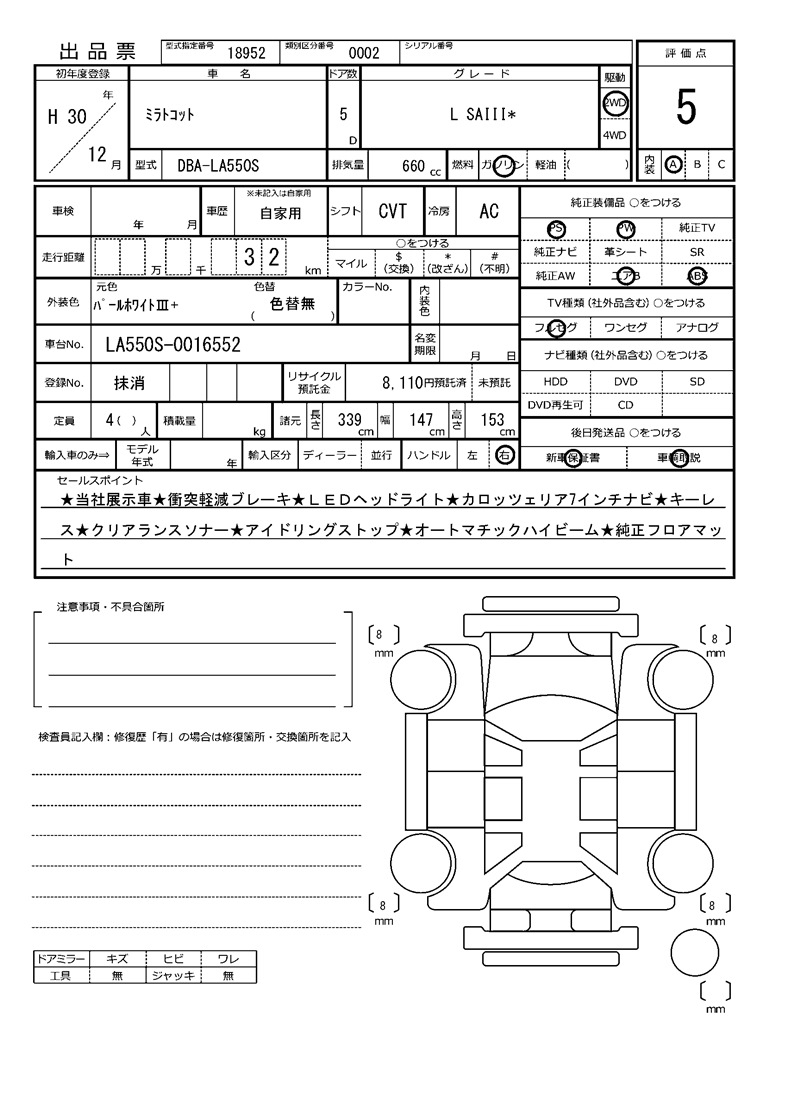 出品票 型式指定番号 18952 類別区分番号 0002 シリアル番号
評価点
初年度登録 車名 ドア数 グレード 駆動
H 30 年 12 月 ミラトコット 5 D L SAIII* 2WD 4WD
5
型式 DBA-LA550S 排気量 660 cc 燃料 ガソリン 軽油 ( )
内装 A B C
車検 年 月 車歴 ※未記入は自家用 自家用 シフト CVT 冷房 AC
走行距離 万 千 3 2 km ○をつける
マイル $(交換) *(改ざん) #(不明)
外装色 元色 パールホワイトⅢ+ 色替 ( 色替無 ) カラーNo. 内装色
車台No. LA550S-0016552 名変期限 月 日
登録No. 抹消 リサイクル預託金 8,110円預託済 未預託
定員 4( )人 積載量 kg 諸元 長さ 339 cm 幅 147 cm 高さ 153 cm
輸入車のみ⇒ モデル年式 年 輸入区分 ディーラー 並行 ハンドル 左 右
純正装備品 ○をつける
PS PW 純正TV
純正ナビ 革シート SR
純正AW エアB ABS
TV種類(社外品含む)○をつける
フルセグ ワンセグ アナログ
ナビ種類(社外品含む)○をつける
HDD DVD SD
DVD再生可 CD
後日発送品 ○をつける
新車保証書 車輌取説
セールスポイント
★当社展示車★衝突軽減ブレーキ★ＬＥＤヘッドライト★カロッツェリア7インチナビ★キーレ
ス★クリアランスソナー★アイドリングストップ★オートマチックハイビーム★純正フロアマッ
ト
注意事項・不具合箇所
[8] mm [8] mm
検査員記入欄：修復歴「有」の場合は修復箇所・交換箇所を記入
[8] mm [8] mm
ドアミラー キズ ヒビ ワレ
工具 無 ジャッキ 無
[ ] mm